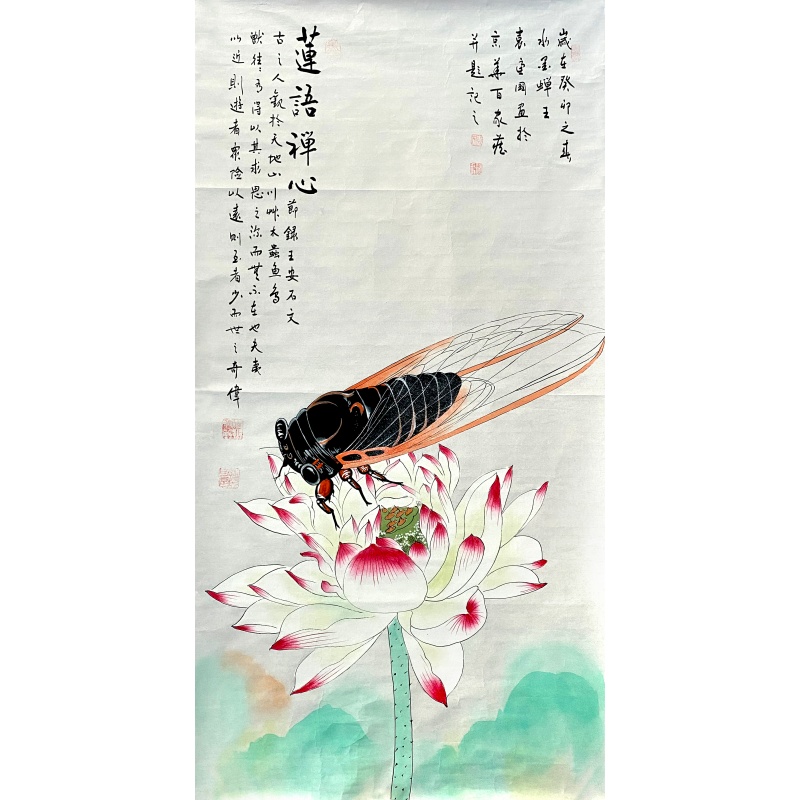 歲在癸卯之春
水墨蟬王
袁金圈畫於
京華百家麓
并題記之
蓮語禪心
節錄王安石文
古之人觀於天地山川艸木蟲鱼鸟
獸往往有得以其求思之深而無不在也夫夷
以近則遊者衆險以遠則至者少而世之奇偉